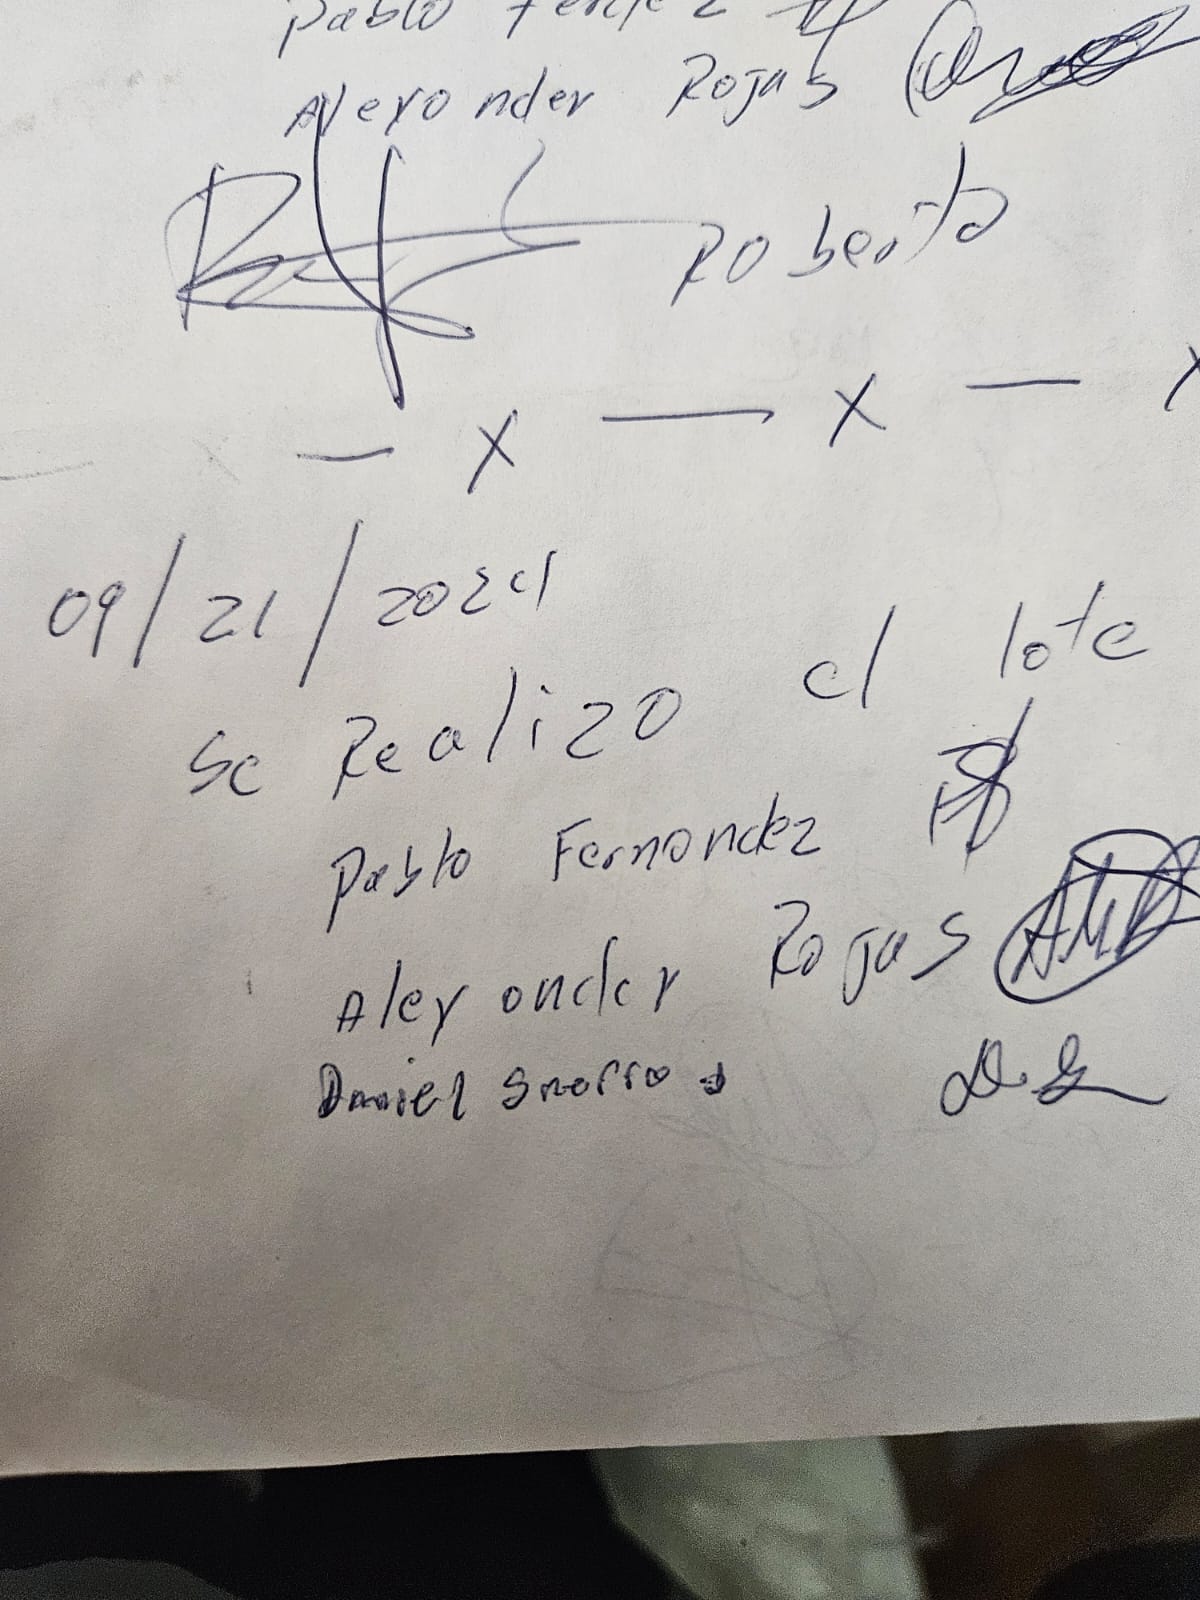 Pablo
Alexander Rojas
Roberto
— x — x — x
09/21/2024
Se Realizo el lote
Pablo Fernandez
Alexander Rojas
Daniel